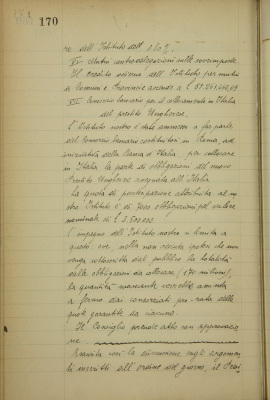 170
re dell'Istituto dell'
XV. Mutui
Il credito odierno dell'Istituto per mutui
a Comuni e Provincie ascende a L.
XVI. Consorzio bancario per il collocamento in Italia
del prestito Ungherese.
L'Istituto nostro è stato ammesso a far parte
del Consorzio bancario costituitosi in Roma, ad
iniziativa della Banca d'Italia per collocare
in Italia la parte di obbligazioni del nuovo
Prestito Ungherese assegnata all'Italia.
La quota di partecipazione attribuita al no
stro Istituto è di 7000 obbligazioni pel valore
nominale di L. 3.500.000
L'impegno dell'Istituto nostro si limita a
questo che nella non creduta ipotesi che non
venga sottoscritta dal pubblico la totalità
delle obbligazioni da collocare
la quantità mancante verrebbe assunta
a fermo dai consorziati pro-rata delle
quote garantite da ciascuno.
Il Consiglio prende atto con approvazio
ne.
Esaurita così la discussione sugli argomen
ti inscritti all'ordine del giorno, il Presi